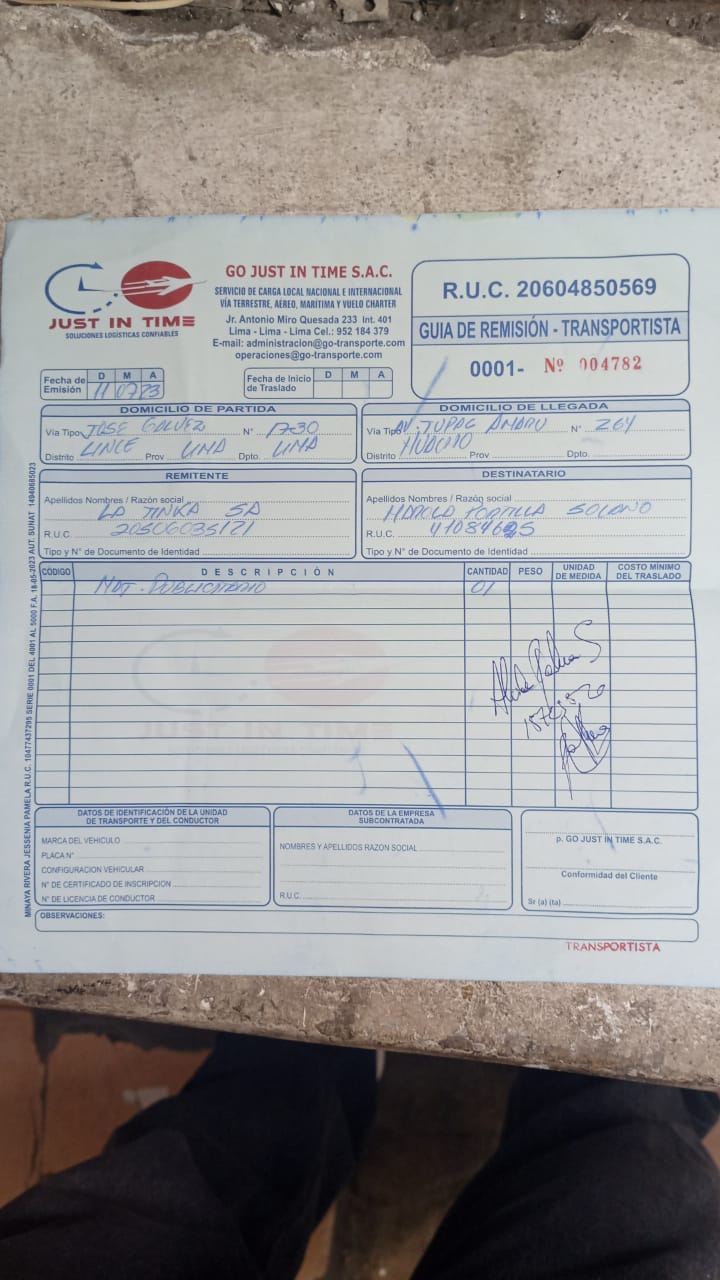 JUST IN TIME
SOLUCIONES LOGÍSTICAS CONFIABLES
GO JUST IN TIME S.A.C.
SERVICIO DE CARGA LOCAL NACIONAL E INTERNACIONAL
VÍA TERRESTRE, AÉREO, MARÍTIMA Y VUELO CHARTER
Jr. Antonio Miro Quesada 233 Int. 401
Lima - Lima - Lima Cel.: 952 184 379
E-mail: administracion@go-transporte.com
operaciones@go-transporte.com
R.U.C. 20604850569
GUIA DE REMISIÓN - TRANSPORTISTA
0001- Nº 004782
Fecha de Emisión D M A 11 07 23
Fecha de Inicio de Traslado D M A
DOMICILIO DE PARTIDA
Vía Tipo JOSE GALVEZ N° 1730
Distrito LINCE Prov LIMA Dpto. LIMA
DOMICILIO DE LLEGADA
Vía Tipo AV. TUPAC AMARU N° 264
Distrito HUACHO Prov Dpto.
REMITENTE
Apellidos Nombres / Razón social
LA TINKA SA
R.U.C. 20506035121
Tipo y N° de Documento de Identidad
DESTINATARIO
Apellidos Nombres / Razón social
HAROLD PORTILLA SOLANO
R.U.C.
Tipo y N° de Documento de Identidad
CÓDIGO DESCRIPCIÓN CANTIDAD PESO UNIDAD DE MEDIDA COSTO MÍNIMO DEL TRASLADO
MAT. PUBLICITARIO 01
JUST IN TIME
MINAYA RIVERA JESSENIA PAMELA R.U.C. 10477437295 SERIE 0001 DEL 4001 AL 5000 F.A. 18-05-2023 AUT. SUNAT 14940685023
DATOS DE IDENTIFICACIÓN DE LA UNIDAD
DE TRANSPORTE Y DEL CONDUCTOR
MARCA DEL VEHICULO
PLACA N°
CONFIGURACION VEHICULAR
N° DE CERTIFICADO DE INSCRIPCION
N° DE LICENCIA DE CONDUCTOR
DATOS DE LA EMPRESA
SUBCONTRATADA
NOMBRES Y APELLIDOS RAZON SOCIAL
R.U.C.
p. GO JUST IN TIME S.A.C.
Conformidad del Cliente
Sr (a) (ta)
OBSERVACIONES:
TRANSPORTISTA